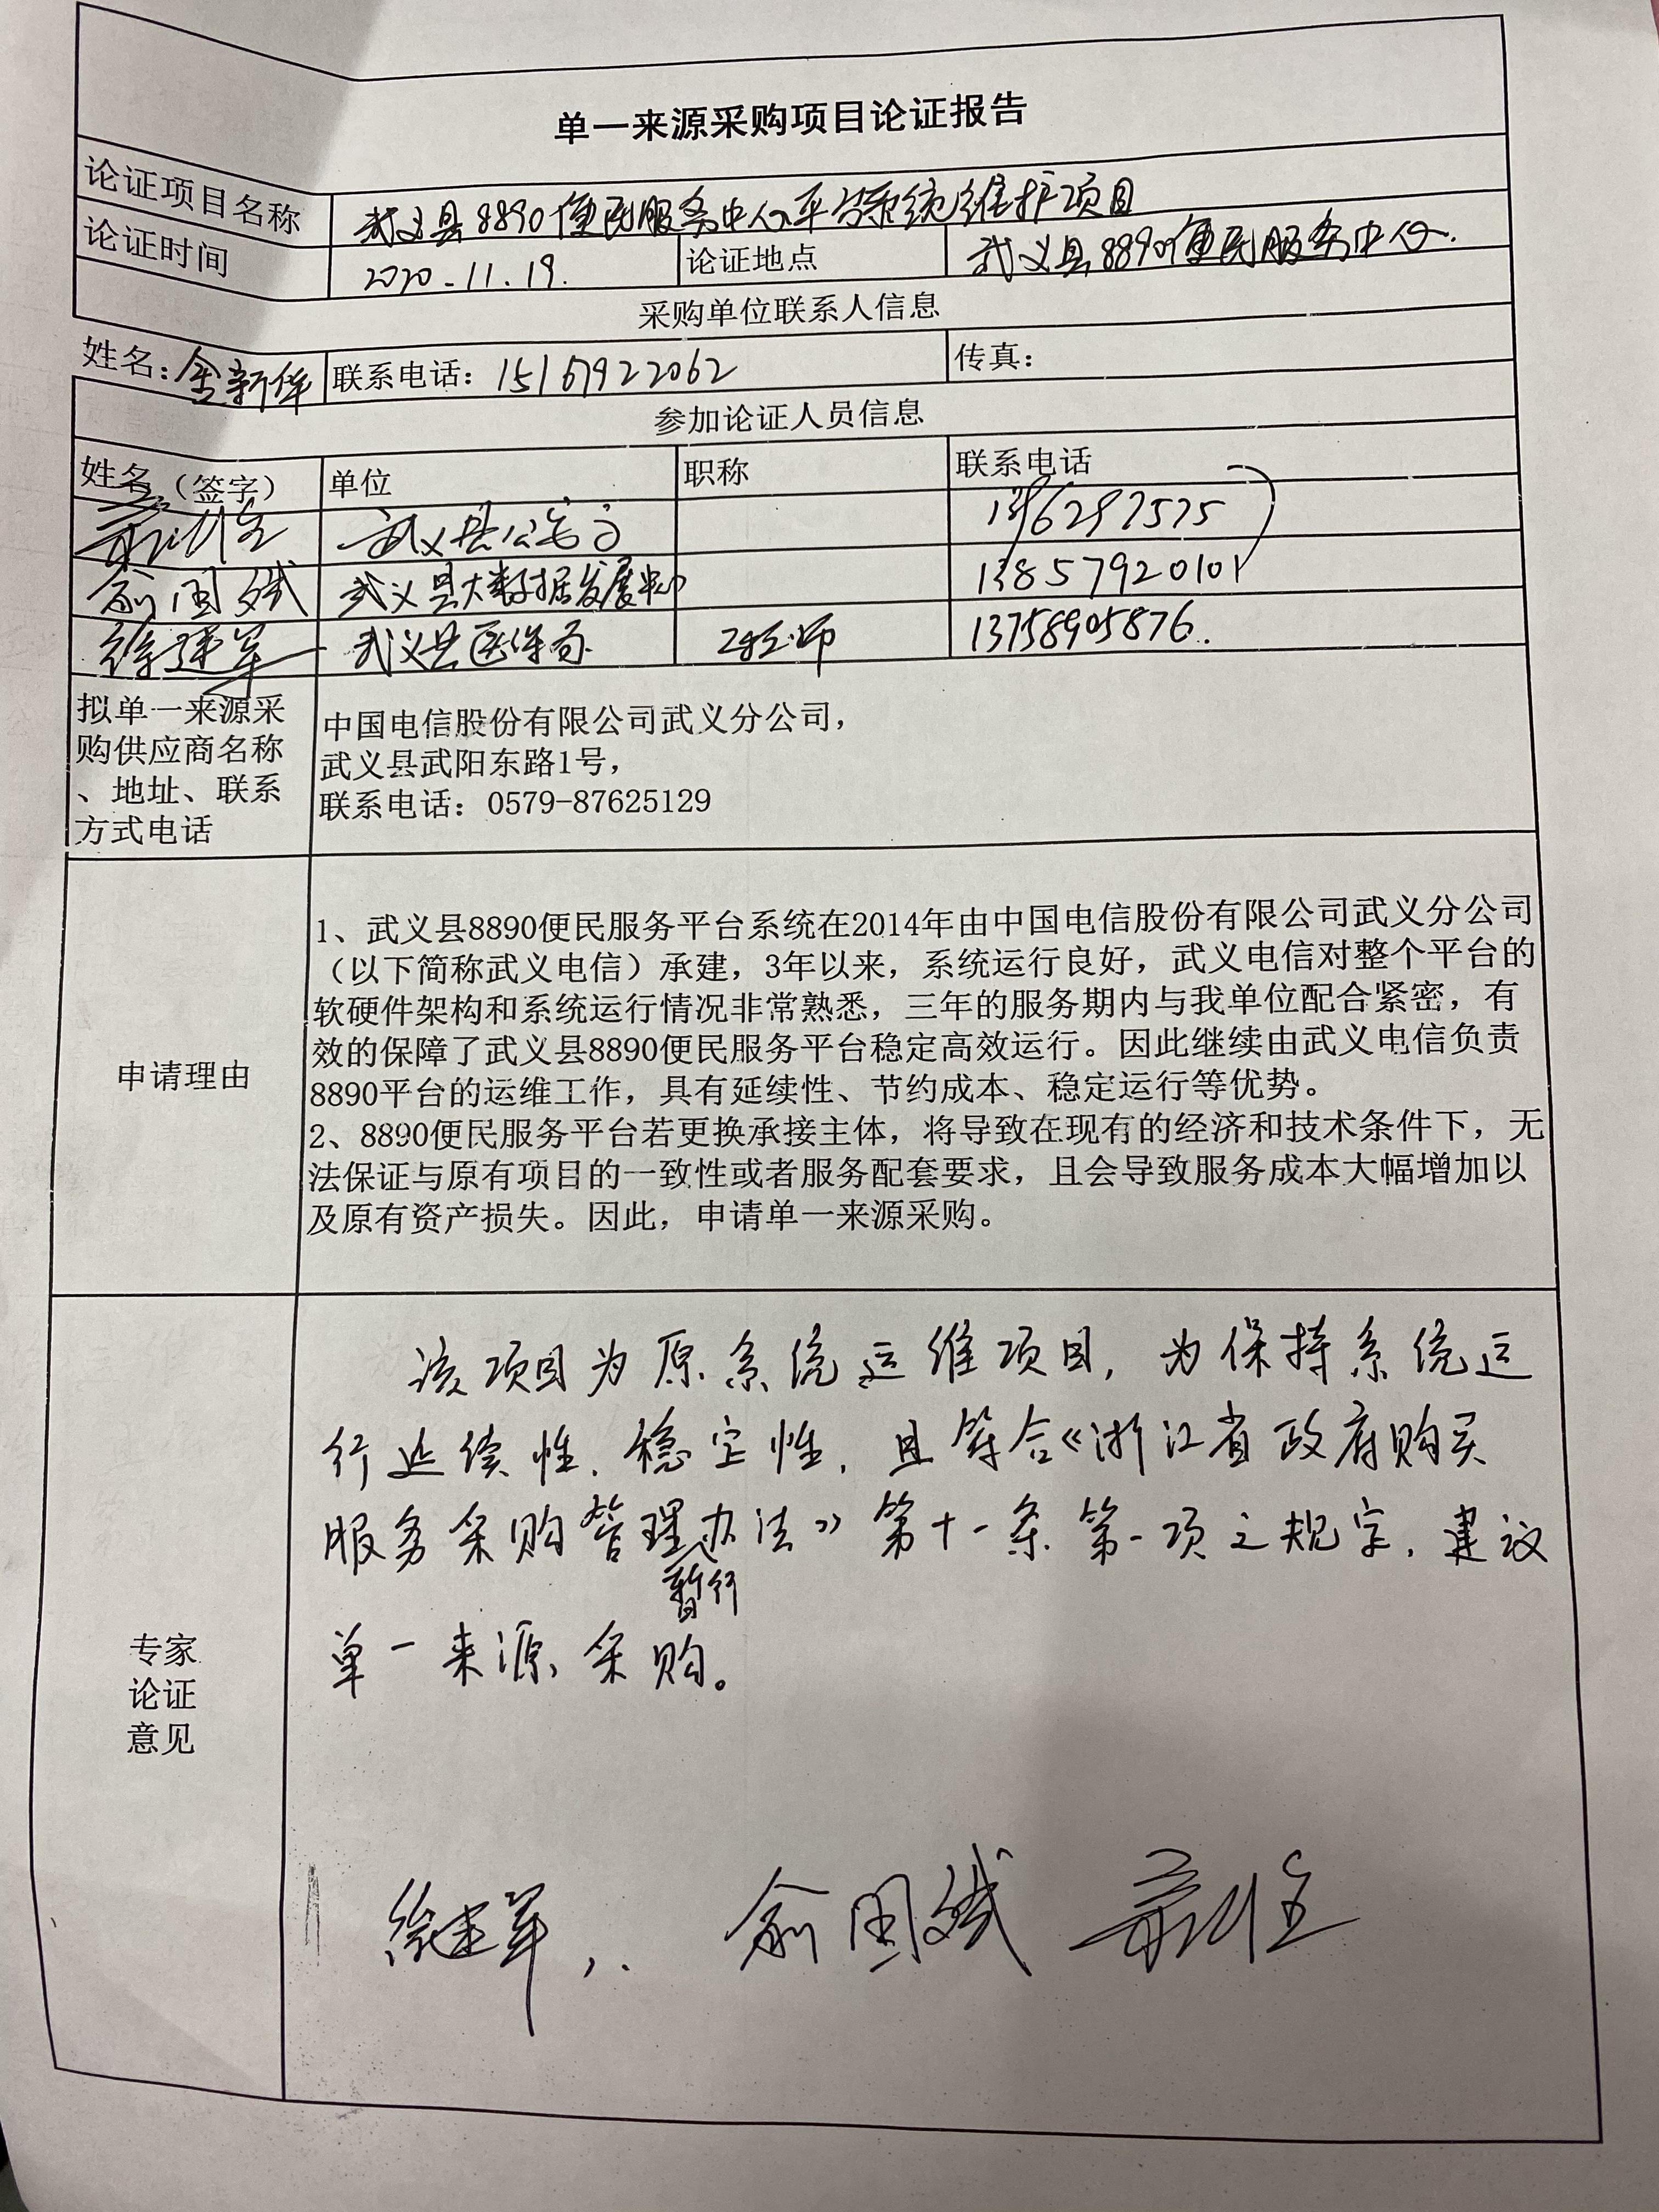 单一来源采购项目论证报告
论证项目名称 武义县8890便民服务中心平台系统维护项目
论证时间 2020.11.19. 论证地点 武义县8890便民服务中心.
采购单位联系人信息
姓名：金新华 联系电话：15167922062 传真：
参加论证人员信息
姓名（签字） 单位 职称 联系电话
武义县公安局
俞国斌 武义县大数据发展中心 13857920101
徐建军 武义县医保局 工程师 13758905876.
拟单一来源采
购供应商名称
、地址、联系
方式电话
中国电信股份有限公司武义分公司，
武义县武阳东路1号，
联系电话：0579-87625129
申请理由
1、武义县8890便民服务平台系统在2014年由中国电信股份有限公司武义分公司
（以下简称武义电信）承建，3年以来，系统运行良好，武义电信对整个平台的
软硬件架构和系统运行情况非常熟悉，三年的服务期内与我单位配合紧密，有
效的保障了武义县8890便民服务平台稳定高效运行。因此继续由武义电信负责
8890平台的运维工作，具有延续性、节约成本、稳定运行等优势。
2、8890便民服务平台若更换承接主体，将导致在现有的经济和技术条件下，无
法保证与原有项目的一致性或者服务配套要求，且会导致服务成本大幅增加以
及原有资产损失。因此，申请单一来源采购。
专家
论证
意见
该项目为原系统运维项目，为保持系统运
行延续性、稳定性，且符合《浙江省政府购买
服务采购管理办法》第十一条第一项之规定，建议
暂行
单一来源采购。
徐建军 俞国斌